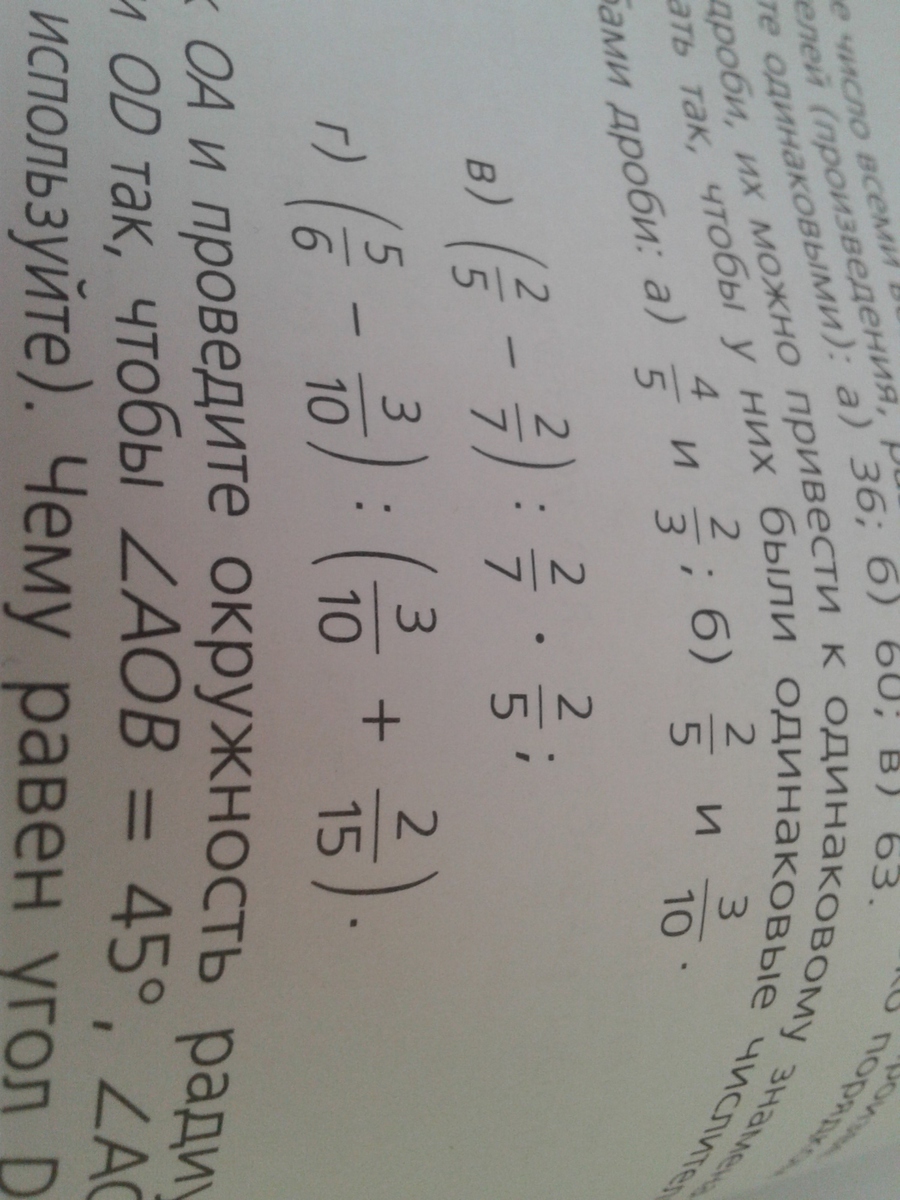 е число всеми
елей (произведения,
те одинаковыми): а) 36; б) 60; в) 63.
дроби, их можно привести к одинаковому
ать так, чтобы у них были одинаковые числител
бами дроби: а) 4/5 и 2/3; б) 2/5 и 3/10.
в) (2/5 − 2/7) : 2/7 · 2/5;
г) (5/6 − 3/10) : (3/10 + 2/15).
ОА и проведите окружность ради
и OD так, чтобы ∠AOB = 45°, ∠AO
используйте). Чему равен угол D